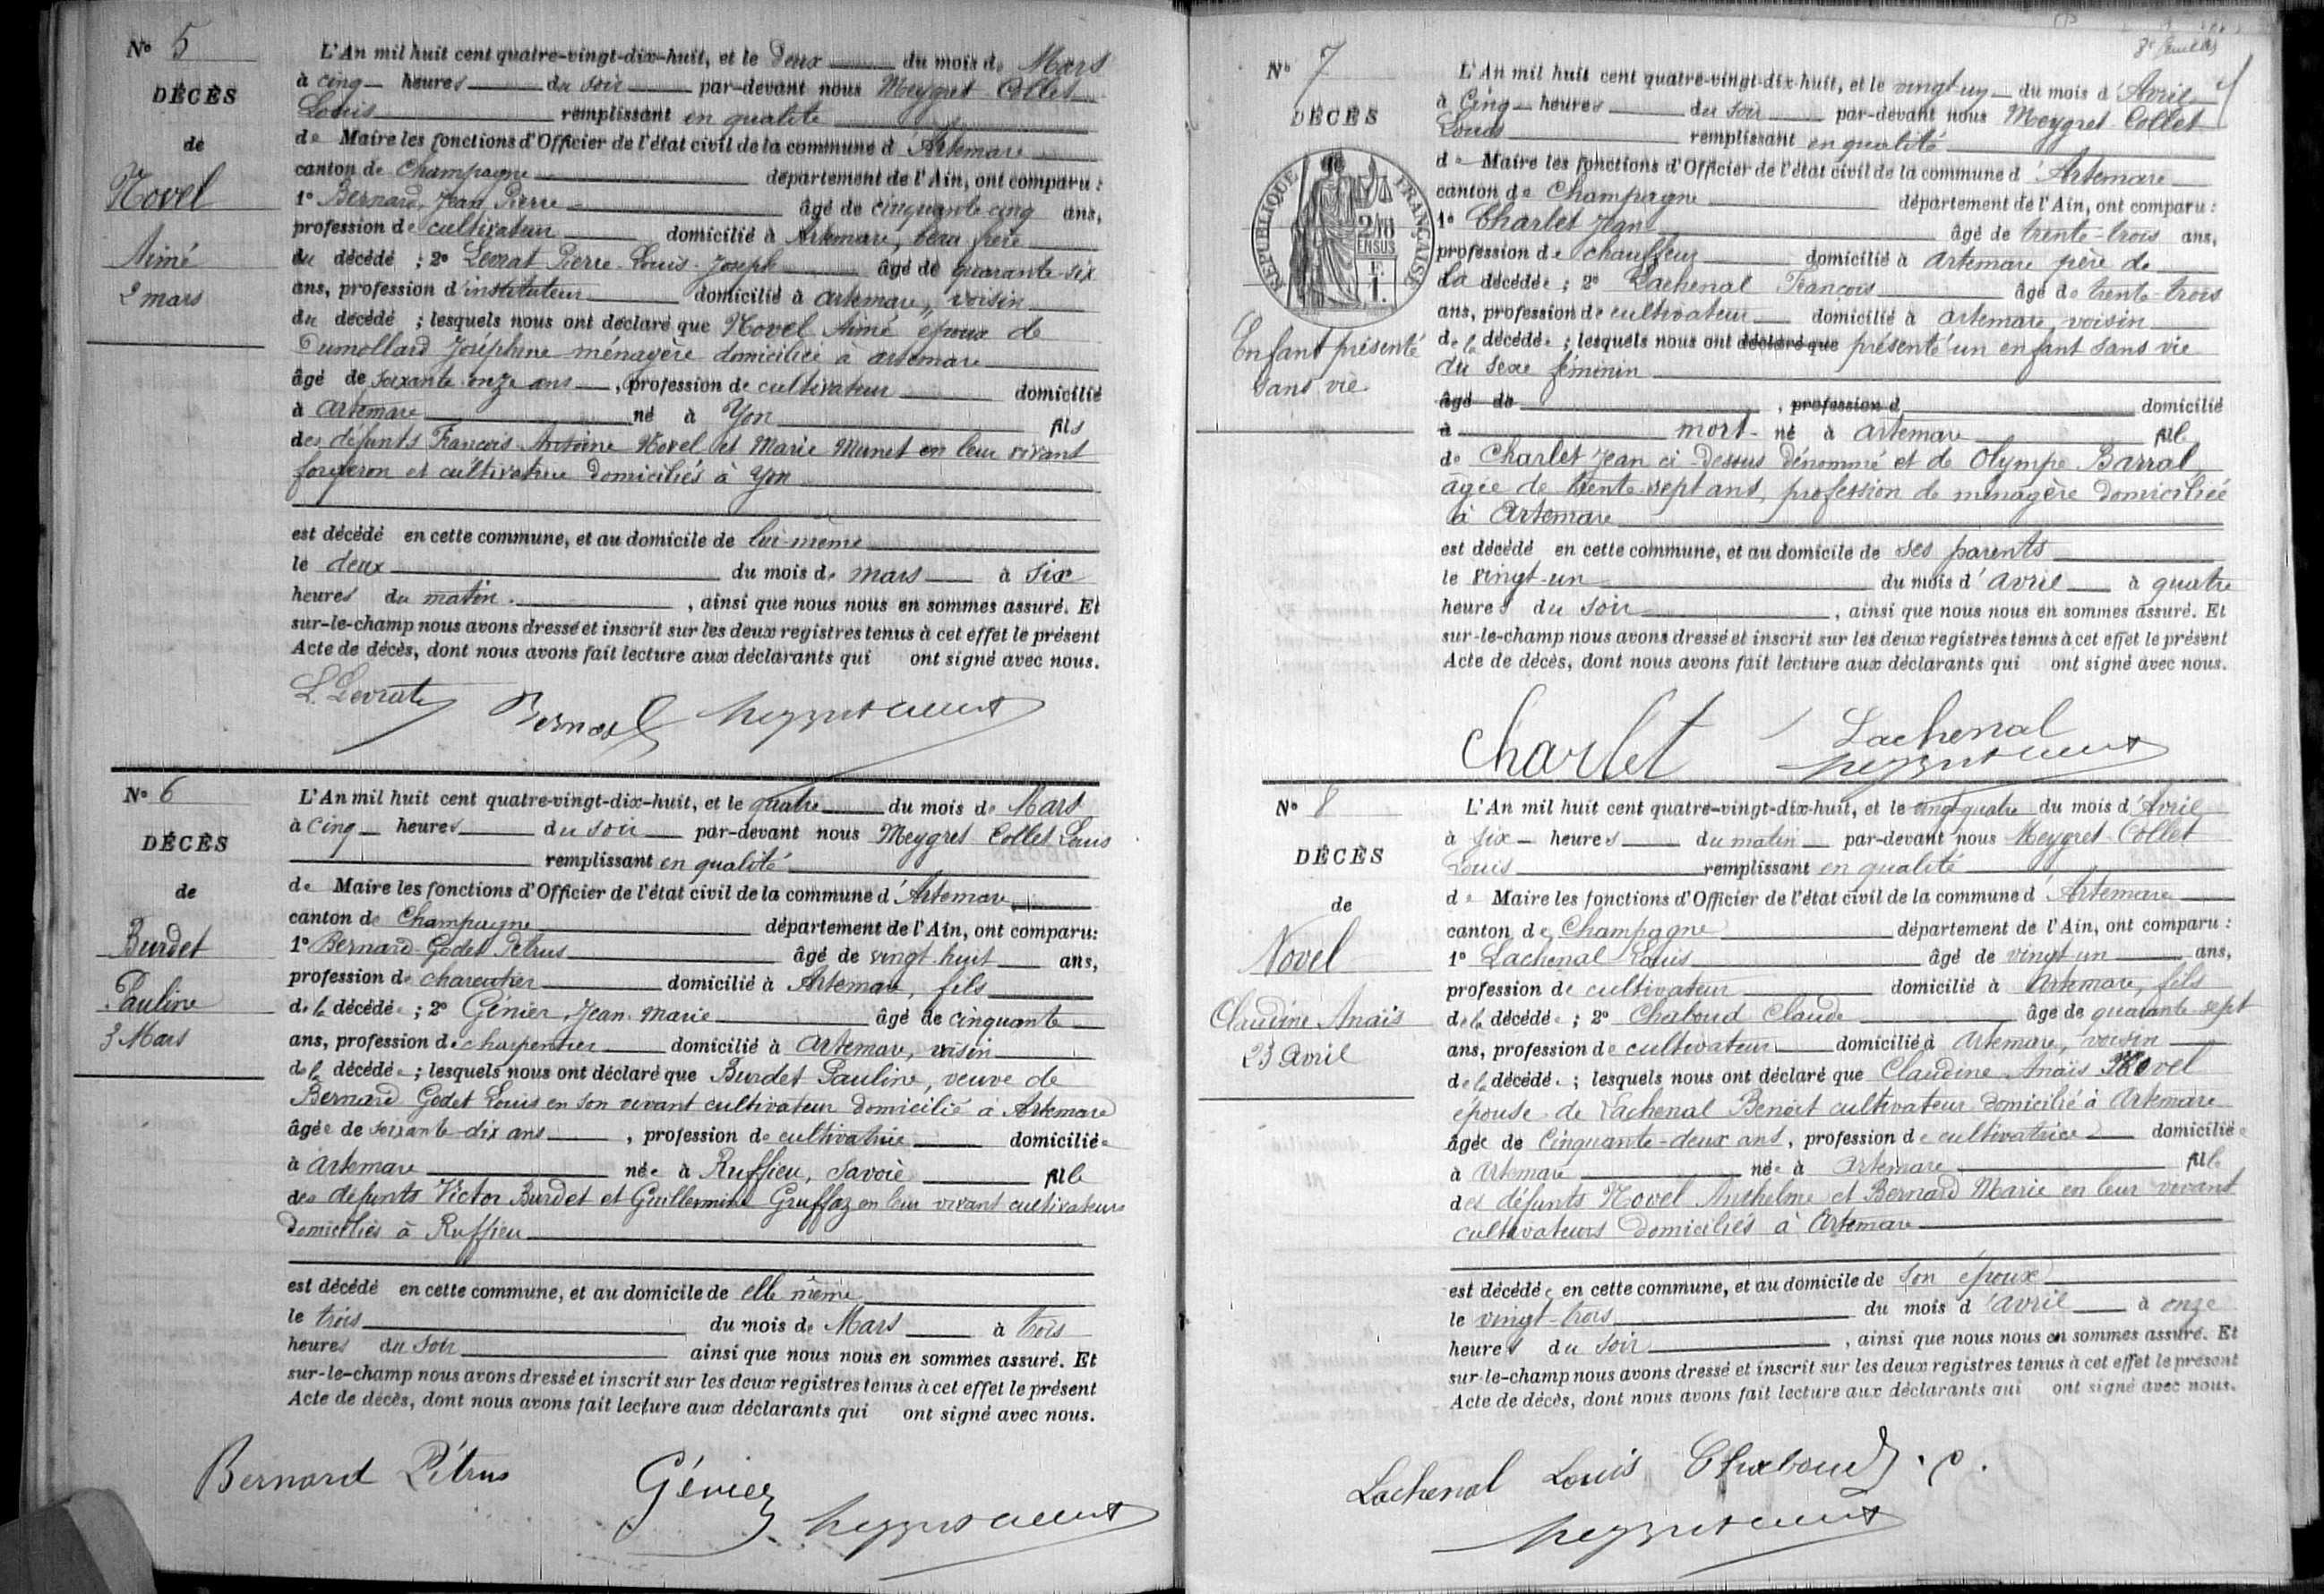 N° 5
DÉCÈS
de
Novel
Aimé
2 mars
L'An mil huit cent quatre-vingt-dix-huit, et le Deux du mois de Mars
à cinq heures du soir par-devant nous Meygret Collet
Louis remplissant en qualité
de Maire les fonctions d'Officier de l'état civil de la commune d'Artemare
canton de Champagne département de l'Ain, ont comparu :
1° Bernard, Jean Pierre âgé de cinquante cinq ans,
profession de cultivateur domicilié à Artemare, beau frère
du décédé ; 2° Levrat Pierre Louis Joseph âgé de quarante-six
ans, profession d'instituteur domicilié à artemare, voisin
du décédé ; lesquels nous ont déclaré que Novel Aimé époux de
Dumollard Joséphine ménagère domiciliée à artemare
âgé de soixante onze ans, profession de cultivateur domicilié
à artemare né à Yon fils
des défunts François Antoine Novel et Marie Munet en leur vivant
forgeron et cultivatrice domiciliés à Yon
est décédé en cette commune, et au domicile de lui-même
le deux du mois de mars à six
heures du matin, ainsi que nous nous en sommes assuré. Et
sur-le-champ nous avons dressé et inscrit sur les deux registres tenus à cet effet le présent
Acte de décès, dont nous avons fait lecture aux déclarants qui ont signé avec nous.
L. Levrat Bernard Meygret Collet
N° 6
DÉCÈS
de
Burdet
Pauline
3 Mars
L'An mil huit cent quatre-vingt-dix-huit, et le quatre du mois de Mars
à cinq heures du soir par-devant nous Meygret Collet Louis
remplissant en qualité
de Maire les fonctions d'Officier de l'état civil de la commune d'Artemare
canton de Champagne département de l'Ain, ont comparu :
1° Bernard-Godet Pétrus âgé de vingt huit ans,
profession de charcutier domicilié à Artemare, fils
de la décédée ; 2° Génier, Jean Marie âgé de cinquante
ans, profession de charpentier domicilié à Artemare, voisin
de la décédée ; lesquels nous ont déclaré que Burdet Pauline, veuve de
Bernard Godet Louis en son vivant cultivateur domicilié à Artemare
âgée de soixante-dix ans, profession de cultivatrice domiciliée
à artemare née à Ruffieu, Savoie fille
des défunts Victor Burdet et Guillermine Gruffaz en leur vivant cultivateurs
domiciliés à Ruffieu
est décédé en cette commune, et au domicile de elle même
le trois du mois de Mars à trois
heures du soir ainsi que nous nous en sommes assuré. Et
sur-le-champ nous avons dressé et inscrit sur les deux registres tenus à cet effet le présent
Acte de décès, dont nous avons fait lecture aux déclarants qui ont signé avec nous.
Bernard Pétrus Génier Meygret Collet
N° 7
DÉCÈS
de
RÉPUBLIQUE FRANÇAISE
2/10
EN SUS
1 F.
Enfant présenté
sans vie
L'An mil huit cent quatre-vingt-dix-huit, et le vingt-un du mois d'Avril
à Cinq heures du soir par-devant nous Meygret-Collet
Louis remplissant en qualité
de Maire les fonctions d'Officier de l'état civil de la commune d'Artemare
canton de Champagne département de l'Ain, ont comparu :
1° Charlet Jean âgé de trente-trois ans,
profession de chauffeur domicilié à artemare père de
la décédée ; 2° Lachenal François âgé de trente-trois
ans, profession de cultivateur domicilié à artemare, voisin
de la décédée ; lesquels nous ont déclaré que présenté un enfant sans vie
du sexe féminin
âgé de , profession d domicilié
à mort-né à artemare fille
de Charlet Jean ci-dessus dénommé et de Olympe Barral,
âgée de trente-sept ans, profession de ménagère domiciliée
à Artemare
est décédé en cette commune, et au domicile de ses parents
le vingt-un du mois d'avril à quatre
heures du soir, ainsi que nous nous en sommes assuré. Et
sur-le-champ nous avons dressé et inscrit sur les deux registres tenus à cet effet le présent
Acte de décès, dont nous avons fait lecture aux déclarants qui ont signé avec nous.
Charlet Lachenal
Meygret Collet
N° 8
DÉCÈS
de
Novel
Claudine Anaïs
23 avril
L'An mil huit cent quatre-vingt-dix-huit, et le vingt-quatre du mois d'Avril
à six heures du matin par-devant nous Meygret-Collet
Louis remplissant en qualité
de Maire les fonctions d'Officier de l'état civil de la commune d'Artemare
canton de Champagne département de l'Ain, ont comparu :
1° Lachenal Louis âgé de vingt-un ans,
profession de cultivateur domicilié à Artemare, fils
de la décédée ; 2° Chaboud Claude âgé de quarante-sept
ans, profession de cultivateur domicilié à Artemare, voisin
de la décédée ; lesquels nous ont déclaré que Claudine Anaïs Novel
épouse de Lachenal Benoit cultivateur domicilié à Artemare
âgée de Cinquante-deux ans, profession de cultivatrice domiciliée
à Artemare née à Artemare fille
des défunts Novel Anthelme et Bernard Marie en leur vivant
cultivateurs domiciliés à Artemare
est décédée en cette commune, et au domicile de son époux
le vingt-trois du mois d'avril à onze
heures du soir, ainsi que nous nous en sommes assuré. Et
sur-le-champ nous avons dressé et inscrit sur les deux registres tenus à cet effet le présent
Acte de décès, dont nous avons fait lecture aux déclarants qui ont signé avec nous.
Lachenal Louis Chaboud. c.
Meygret Collet